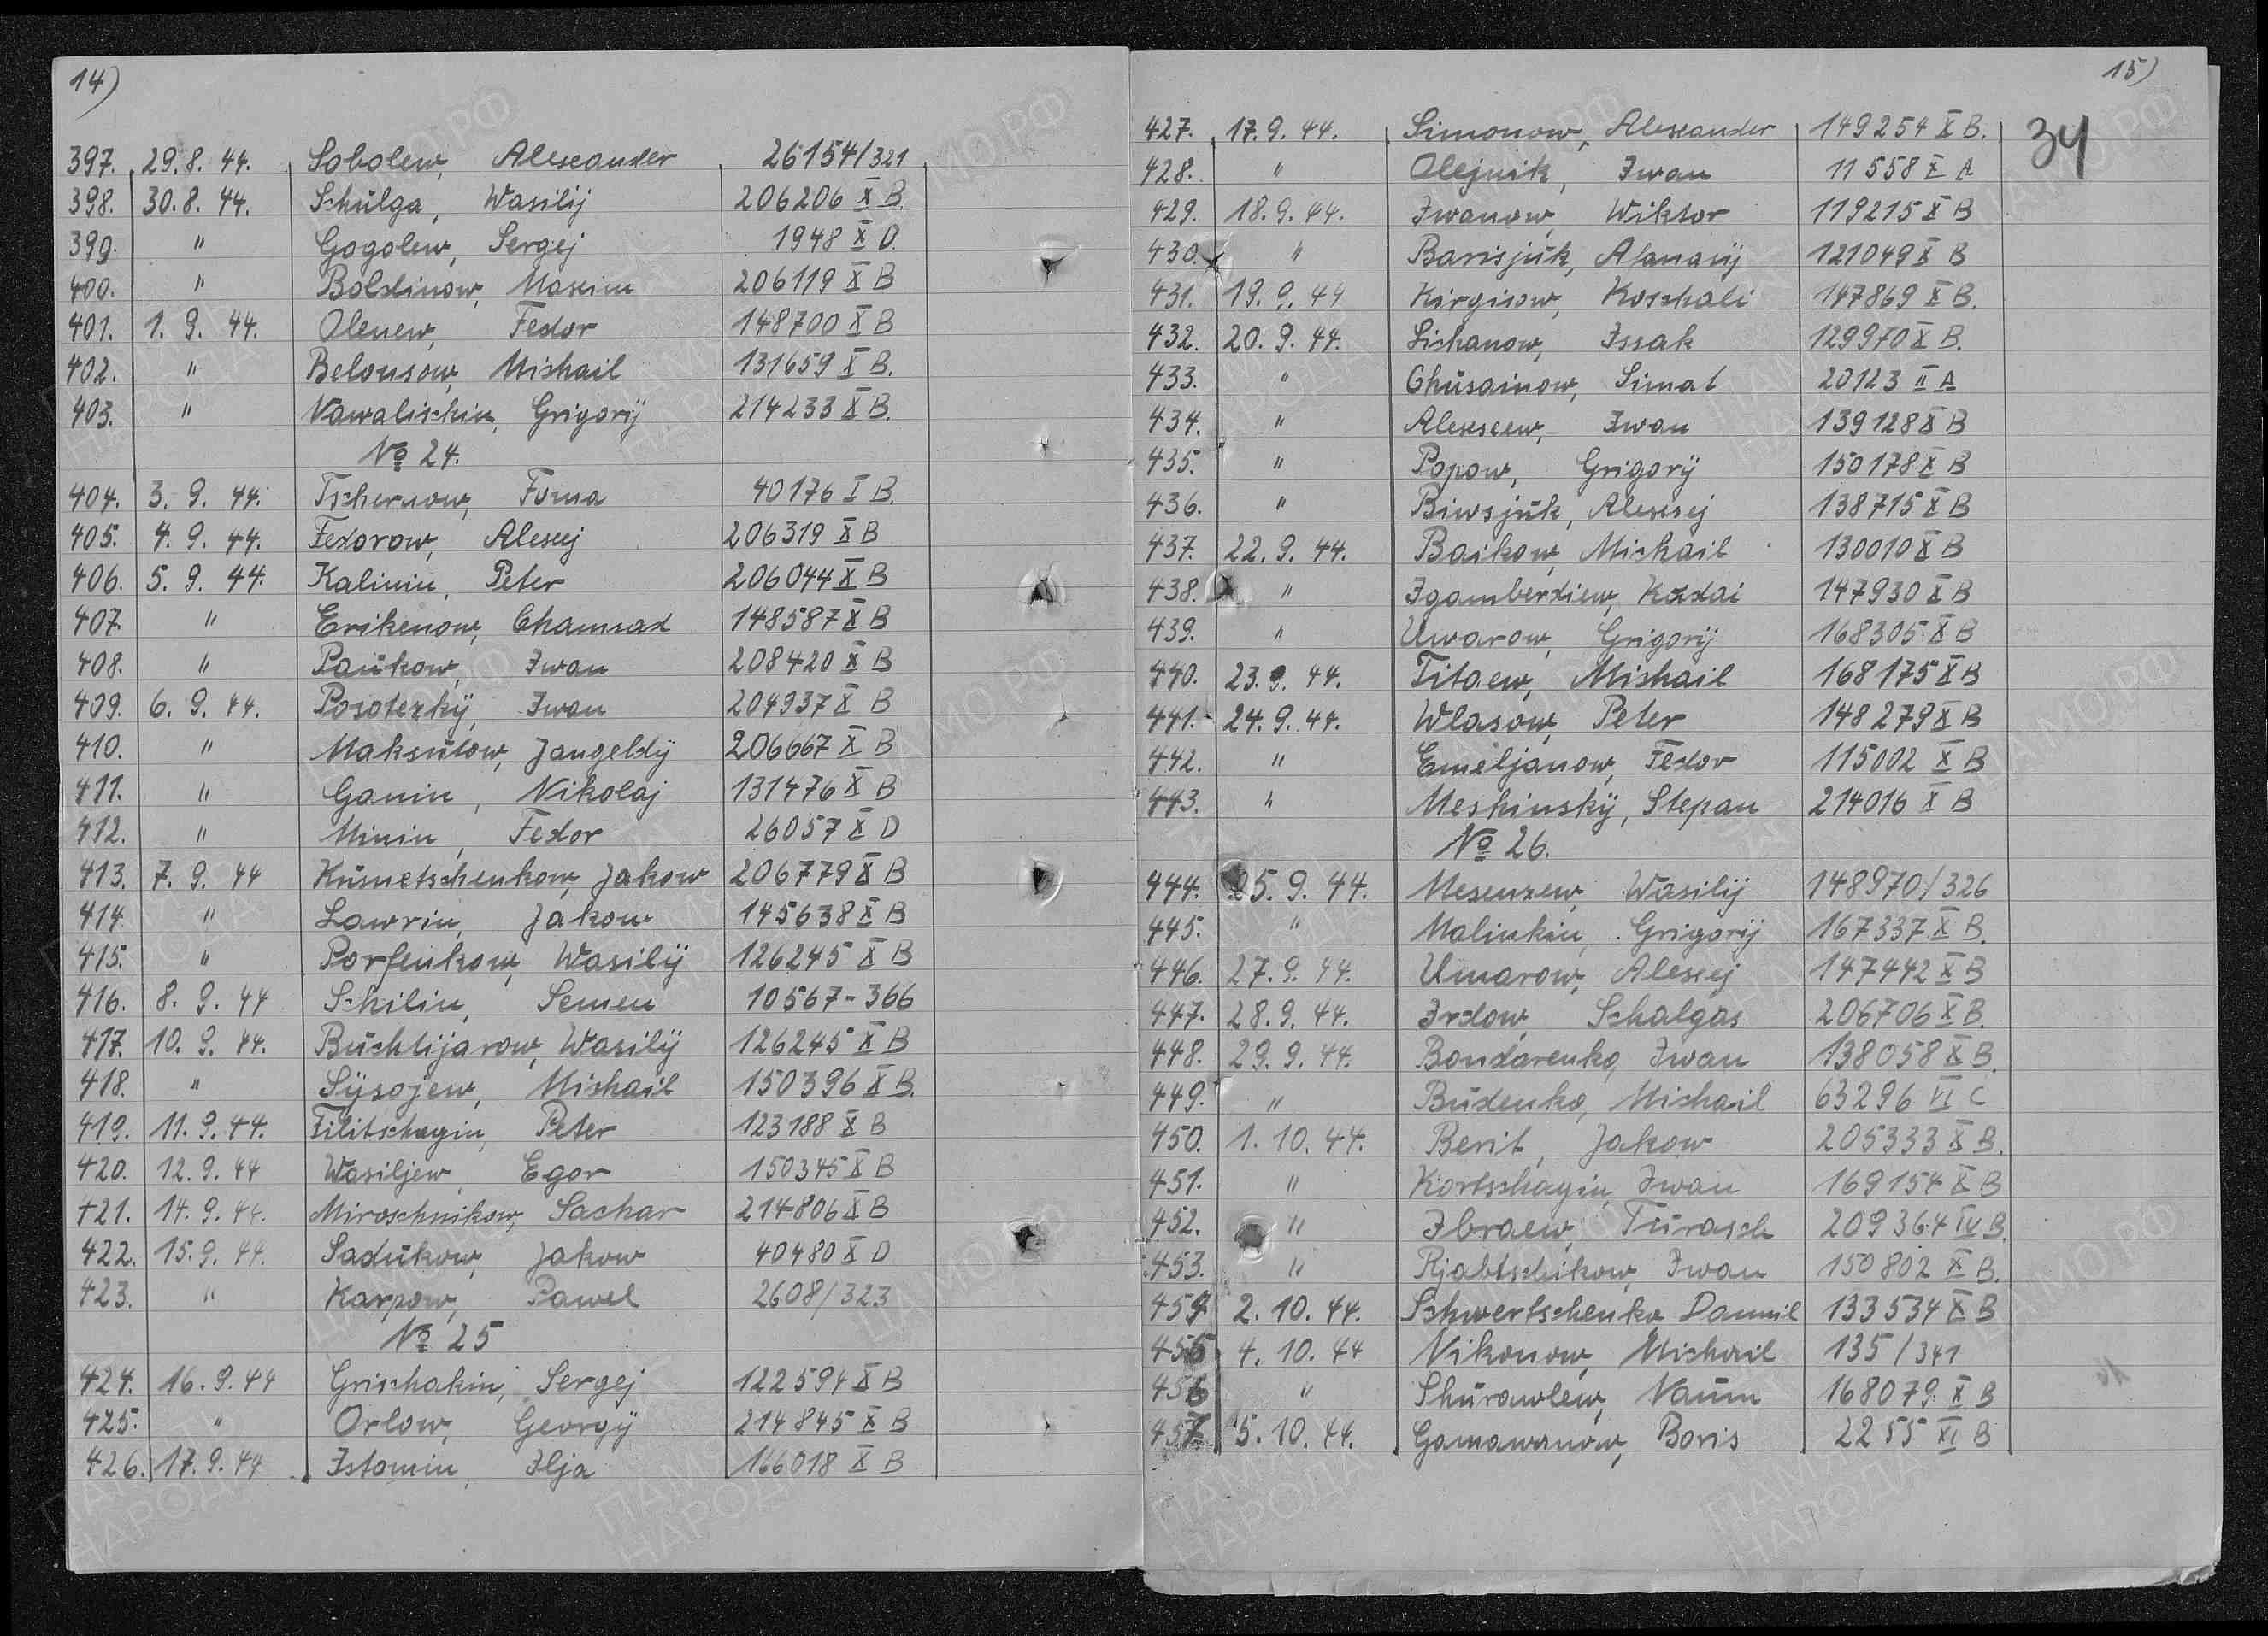 14)
397. 29.8.44. Sobolew, Alexander 26154/321
398. 30.8.44. Schulga, Wasilij 206206 X B.
399. " Gogolew, Sergej 1948 X D.
400. " Boldinow, Maxim 206119 X B
401. 1.9.44. Olenew, Fedor 148700 X B
402. " Belousow, Michail 131659 X B.
403. " Nawalischin, Grigorij 214233 X B.
№ 24.
404. 3.9.44. Tschernow, Foma 40176 I B.
405. 4.9.44. Fedorow, Alexej 206319 X B
406. 5.9.44. Kalinin, Peter 206044 X B
407. " Erikenow, Chamsad 148587 X B
408. " Paukow, Iwan 208420 X B
409. 6.9.44. Posotezkij, Iwan 204937 X B
410. " Maksutow, Jangeldij 206667 X B
411. " Ganin, Nikolaj 131476 X B
412. " Minin, Fedor 26057 X D
413. 7.9.44 Kusnetschenkow, Jakow 206779 X B
414. " Lawrin, Jakow 145638 X B
415. " Porfenkow, Wasilij 126245 X B
416. 8.9.44 Schilin, Semen 10567-366
417. 10.9.44. Buchtijarow, Wasilij 126245 X B
418. " Sysojew, Michail 150396 X B.
419. 11.9.44. Filitschagin, Peter 123188 X B
420. 12.9.44 Wasiljew, Egor 150345 X B
421. 14.9.44. Miroschnikow, Sachar 214806 X B
422. 15.9.44. Sadukow, Jakow 40480 X D
423. " Karpow, Pawel 2608/323
№ 25
424. 16.9.44 Grischakin, Sergej 122594 X B
425. " Orlow, Georgij 214845 X B
426. 17.9.44 Istomin, Ilja 166018 X B
15)
34
427. 17.9.44. Simonow, Alexander 149254 X B.
428. " Olejnik, Iwan 11558 X A
429. 18.9.44. Iwanow, Wiktor 119215 X B
430. " Barisjuk, Afanasij 121049 X B
431. 19.9.44 Kirgisow, Koschali 147869 X B.
432. 20.9.44. Lichanow, Issak 129970 X B.
433. " Chusainow, Simat 20123 II A
434. " Alexeew, Iwan 139128 X B
435. " Popow, Grigorij 150178 X B
436. " Biwsjuk, Alexej 138715 X B
437. 22.9.44. Baikow, Michail 130010 X B
438. " Igamberdiew, Kudai 147930 X B
439. " Uwarow, Grigorij 168305 X B
440. 23.9.44. Titaew, Michail 168175 X B
441. 24.9.44. Wlasow, Peter 148279 X B
442. " Emeljanow, Fedor 115002 X B
443. " Meshinskij, Stepan 214016 X B
№ 26.
444. 25.9.44. Mesenzew, Wasilij 148970/326
445. " Malinkin, Grigorij 167337 X B.
446. 27.9.44. Umarow, Alexej 147442 X B
447. 28.9.44. Irdow, Schalgas 206706 X B.
448. 29.9.44. Bondarenko, Iwan 138058 X B.
449. " Budenko, Michail 63296 VI C
450. 1.10.44. Berit, Jakow 205333 X B.
451. " Kortschagin, Iwan 169154 X B
452. " Ibraew, Turasch 209364 IV B.
453. " Rjabtschikow, Iwan 150802 X B.
454. 2.10.44. Schwertschenko Daniil 133534 X B
455. 4.10.44 Nikonow, Michail 135/341
456. " Shurawlew, Naum 168079 X B
457. 5.10.44. Gamawanow, Boris 2255 XI B